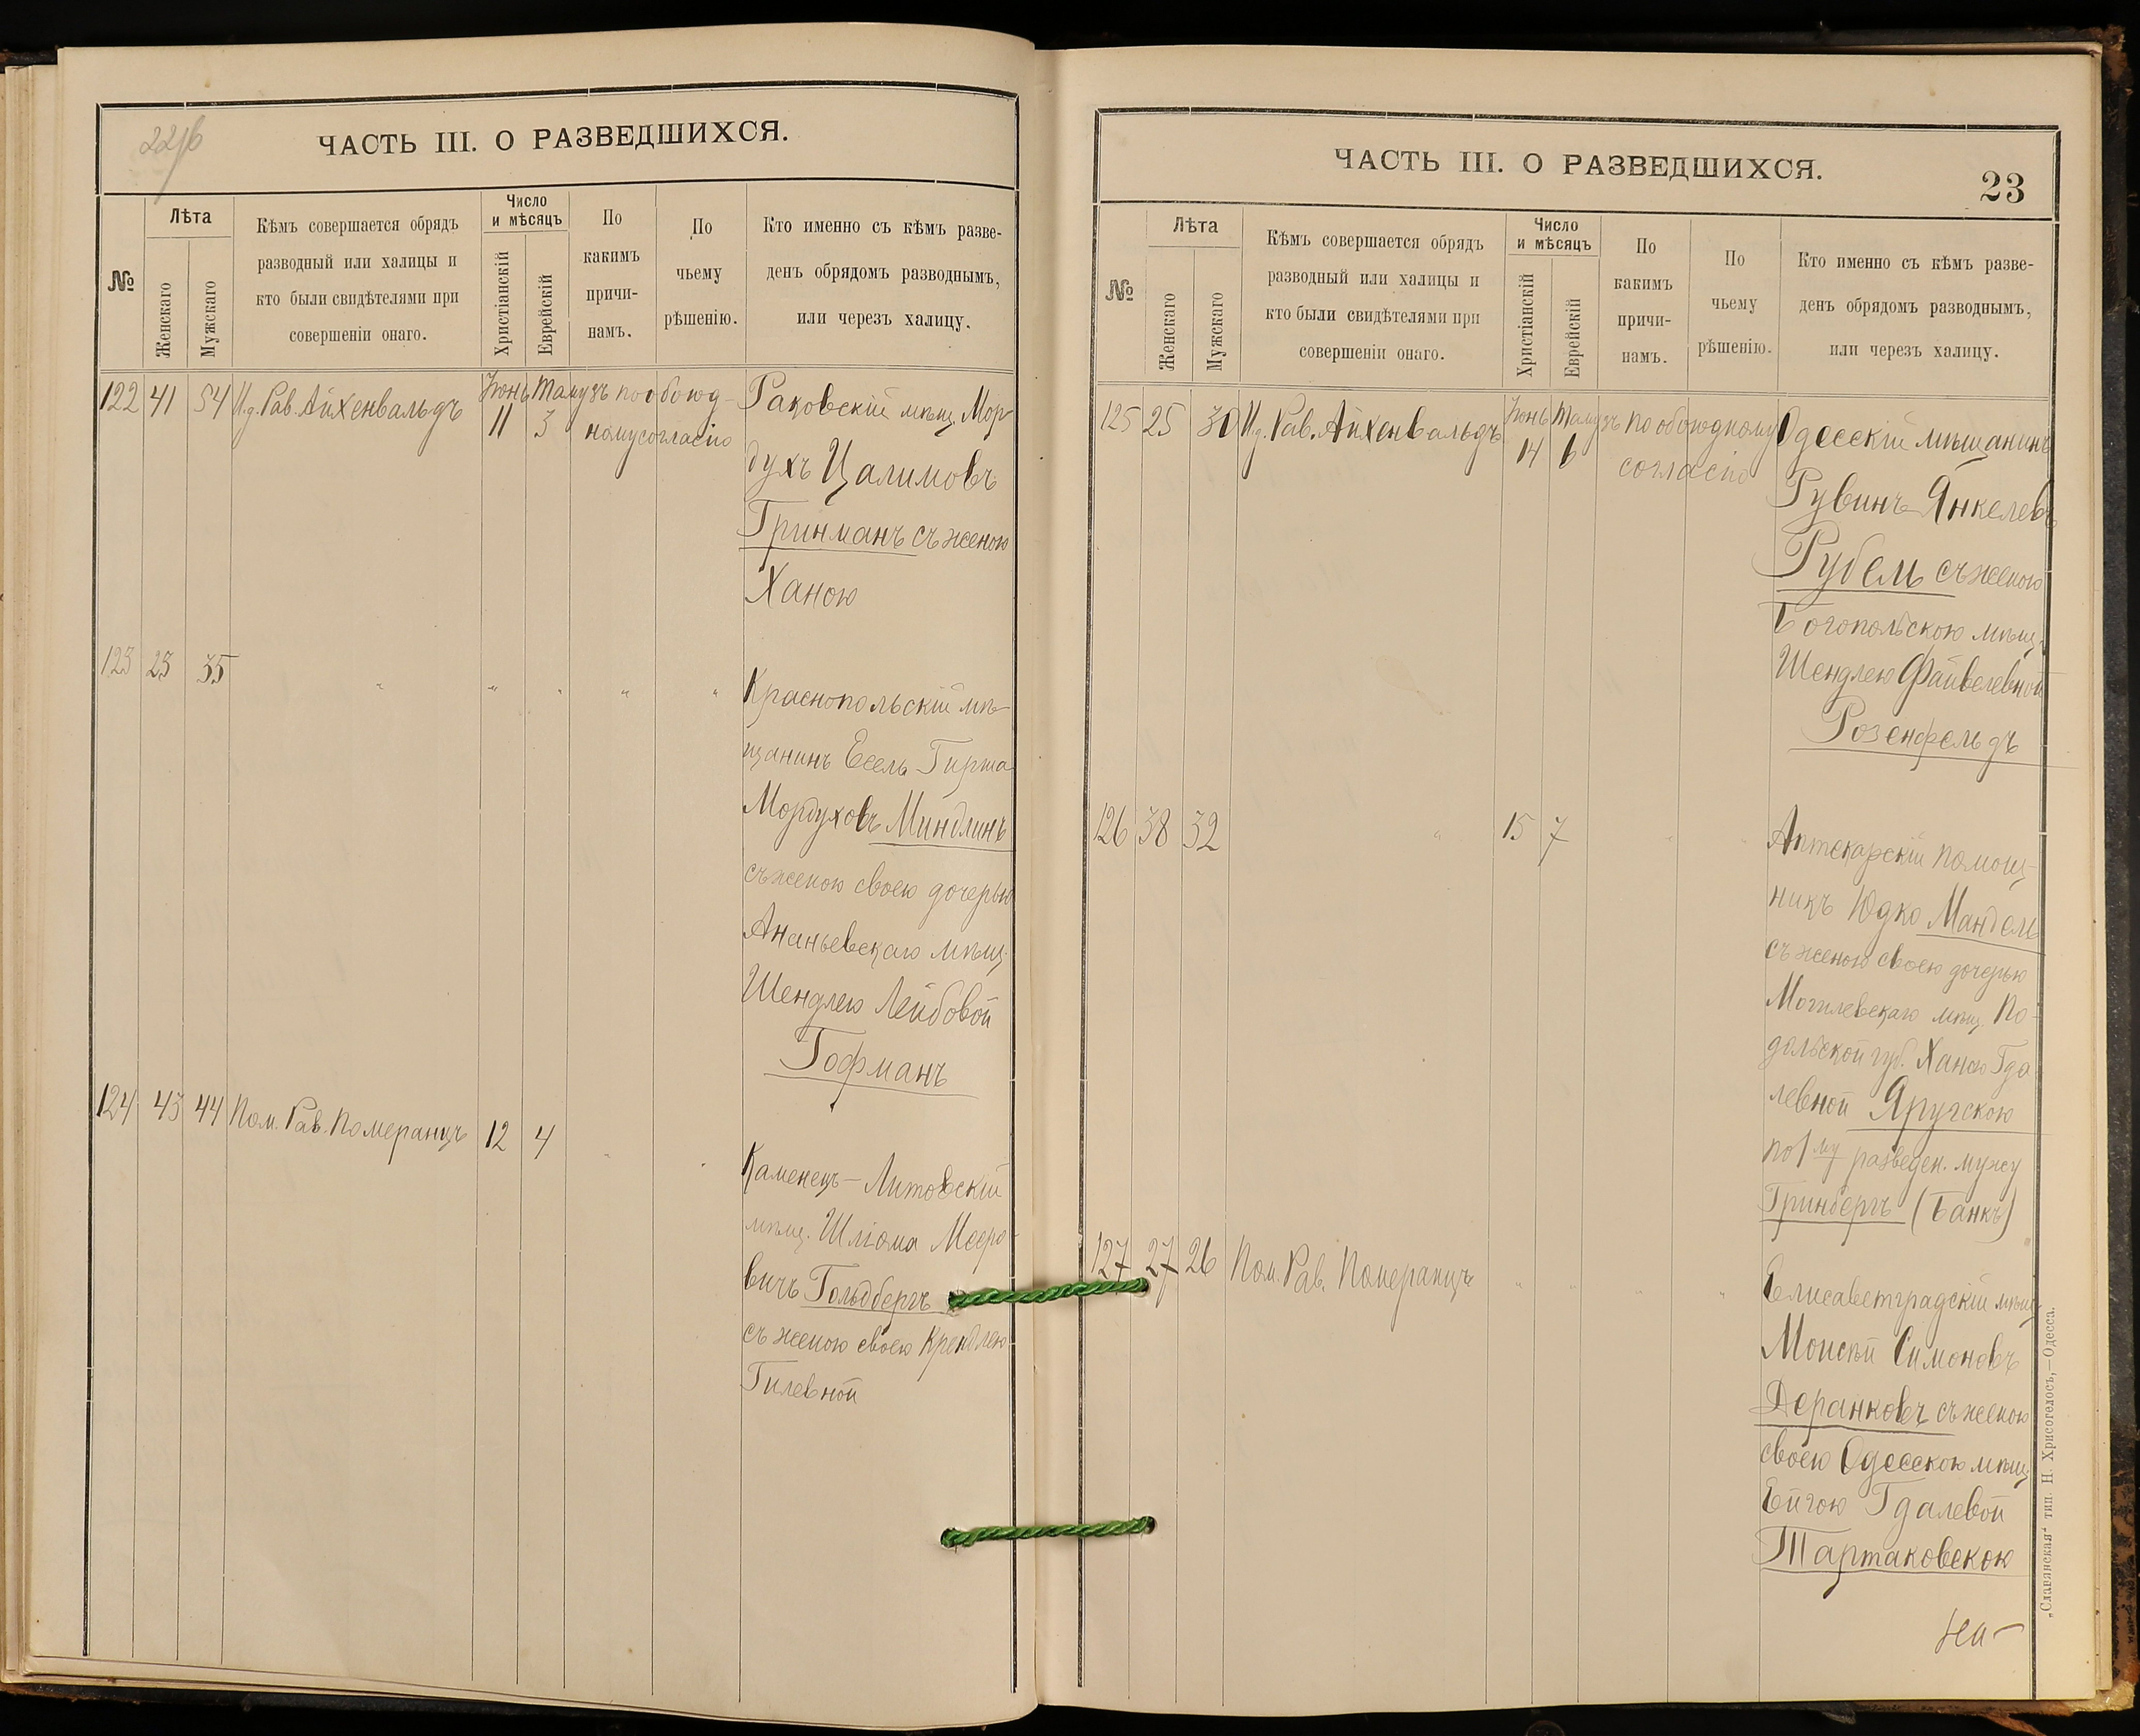 22/b
ЧАСТЬ III. О РАЗВЕДШИХСЯ.
№
Лѣта
Женскаго
Мужскаго
Кѣмъ совершается обрядъ
разводный или халицы и
кто были свидѣтелями при
совершеніи онаго.
Число
и мѣсяцъ
Христіанскій
Еврейскій
По
какимъ
причи-
намъ.
По
чьему
рѣшенію.
Кто именно съ кѣмъ разве-
денъ обрядомъ разводнымъ,
или черезъ халицу.
122 41 54 И.д. Рав. Айхенвальдъ Іюнь Тамузъ по обоюд- Раковскій мѣщ. Мор
11 3 ному согласію
духъ Цалимовъ
Гринманъ съ женою
Ханою
123 23 35 " " " " " Краснопольскій мѣ-
щанинъ Есель Гирша
Мордуховъ Миндлинъ
съ женою своею дочерью
Ананьевскаго мѣщ.
Шендлею Лейбовой
Гофманъ
124 43 44 Пом. Рав. Померанцъ 12 4 " "
Каменецъ-Литовскій
мѣщ. Шлiома Мееро-
вичъ Гольдбергъ
съ женою своею Крендлею
Гилевной
ЧАСТЬ III. О РАЗВЕДШИХСЯ.
23
№
Лѣта
Женскаго
Мужскаго
Кѣмъ совершается обрядъ
разводный или халицы и
кто были свидѣтелями при
совершеніи онаго.
Число
и мѣсяцъ
Христіанскій
Еврейскій
По
какимъ
причи-
намъ.
По
чьему
рѣшенію.
Кто именно съ кѣмъ разве-
денъ обрядомъ разводнымъ,
или черезъ халицу.
125 25 30 И.д. Рав. Айхенвальдъ Іюнь Тамузъ По обоюдному Одесскій мѣщанинъ
14 6 согласію
Рувинъ Янкелевъ
Рубель съ женою
Богопольскою мѣщ.
Шендлею Файвелевной
Розенфельдъ
126 38 32 " 15 7 " " Аптекарскій помощ-
никъ Юдко Мандель
съ женою своею дочерью
Могилевскаго мѣщ. По-
дольской губ. Ханою Гда
левной Яругскою
по 1му разведен. мужу
Гринбергъ (Банкъ)
127 27 26 Пом. Рав. Померанцъ " " " "
Елисаветградскій мѣщ.
Моисѣй Симоновъ
Деранковъ съ женою
своею Одесскою мѣщ.
Ейгою Гдалевой
Тартаковскою
На-
„Славянская“ тип. Н. Хрисогелосъ,—Одесса.